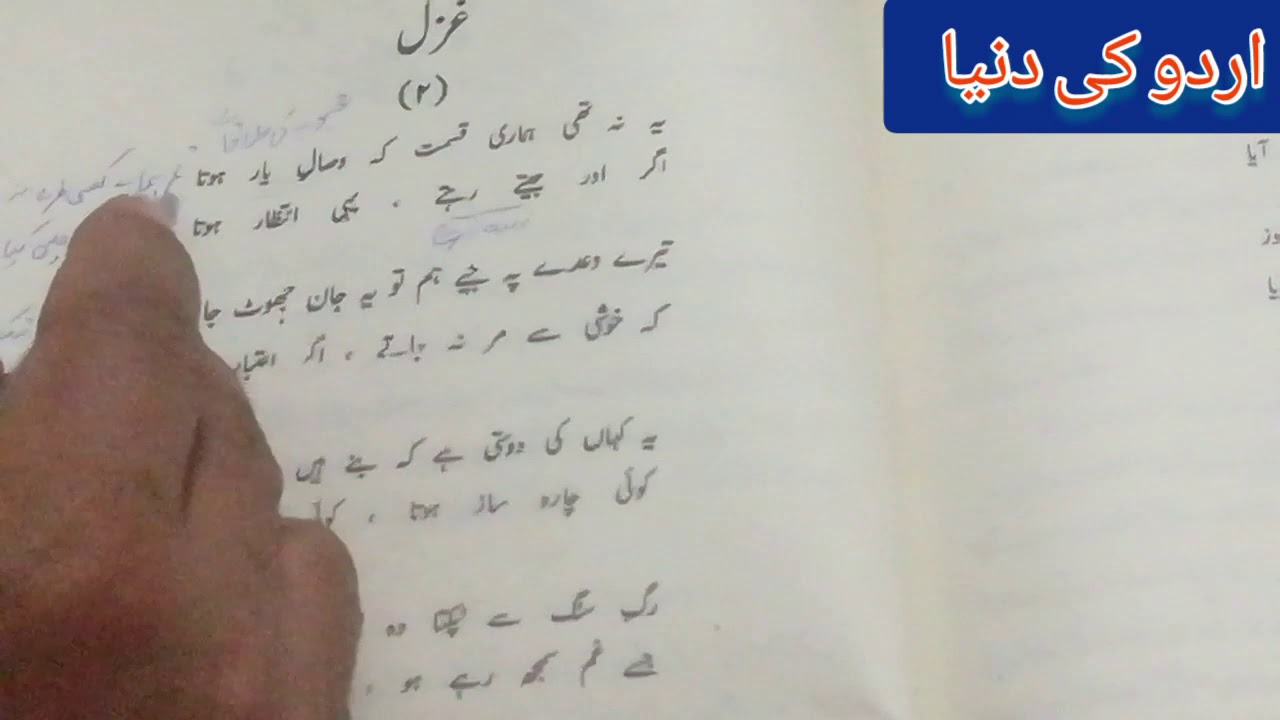 اردو کی دنیا
غزل
(۲)
یہ نہ تھی ہماری قسمت کہ وصالِ یار ہوتا
اگر اور جیتے رہتے ، یہی انتظار ہوتا
تیرے وعدے پہ جیے ہم تو یہ جان جھوٹ جا
کہ خوشی سے مر نہ جاتے ، اگر اعتبار
یہ کہاں کی دوستی ہے کہ بنے ہیں
کوئی چارہ ساز ہوتا ، کوئی
رگِ سنگ سے ٹپکتا وہ
جسے غم سمجھ رہے ہو ،
آیا
وز
یا